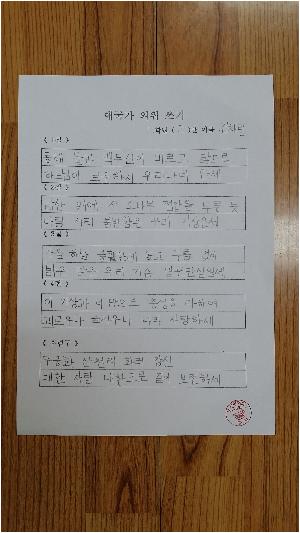 애국가 외워 쓰기
< 1절 >
동해 물과 백두산이 마르고 닳도록
하느님이 보우하사 우리나라 만세
< 2절 >
남산 위에 저 소나무 철갑을 두른 듯
바람 서리 불변함은 우리 기상일세
< 3절 >
가을 하늘 공활한데 높고 구름 없이
밝은 달은 우리 가슴 일편단심일세
< 4절 >
이 기상과 이 맘으로 충성을 다하여
괴로우나 즐거우나 나라 사랑하세
< 후렴구 >
무궁화 삼천리 화려 강산
대한 사람 대한으로 길이 보전하세